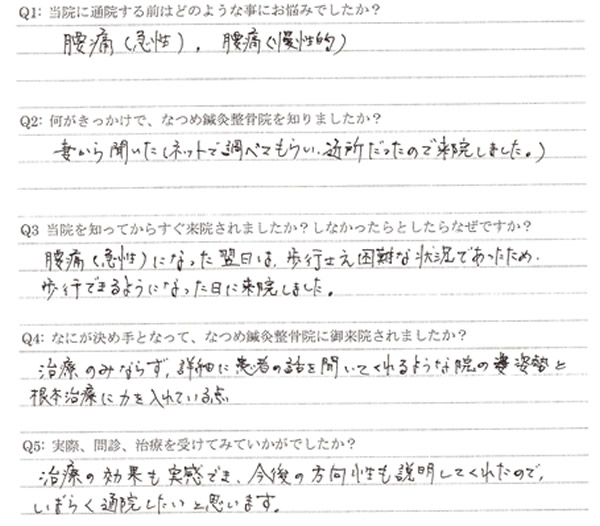 Q1: 当院に通院する前はどのような事にお悩みでしたか？
腰痛（急性）, 腰痛（慢性的）
Q2: 何がきっかけで、なつめ鍼灸整骨院を知りましたか？
妻から聞いた（ネットで調べてもらい、近所だったので来院しました。）
Q3 当院を知ってからすぐ来院されましたか？しなかったらとしたらなぜですか？
腰痛（急性）になった翌日は、歩行さえ困難な状況であったため、
歩行できるようになった日に来院しました。
Q4: なにが決め手となって、なつめ鍼灸整骨院に御来院されましたか？
治療のみならず、詳細に患者の話を聞いてくれるような院の姿勢と
根本治療に力を入れている点
Q5: 実際、問診、治療を受けてみていかがでしたか？
治療の効果も実感でき、今後の方向性も説明してくれたので、
しばらく通院したいと思います。